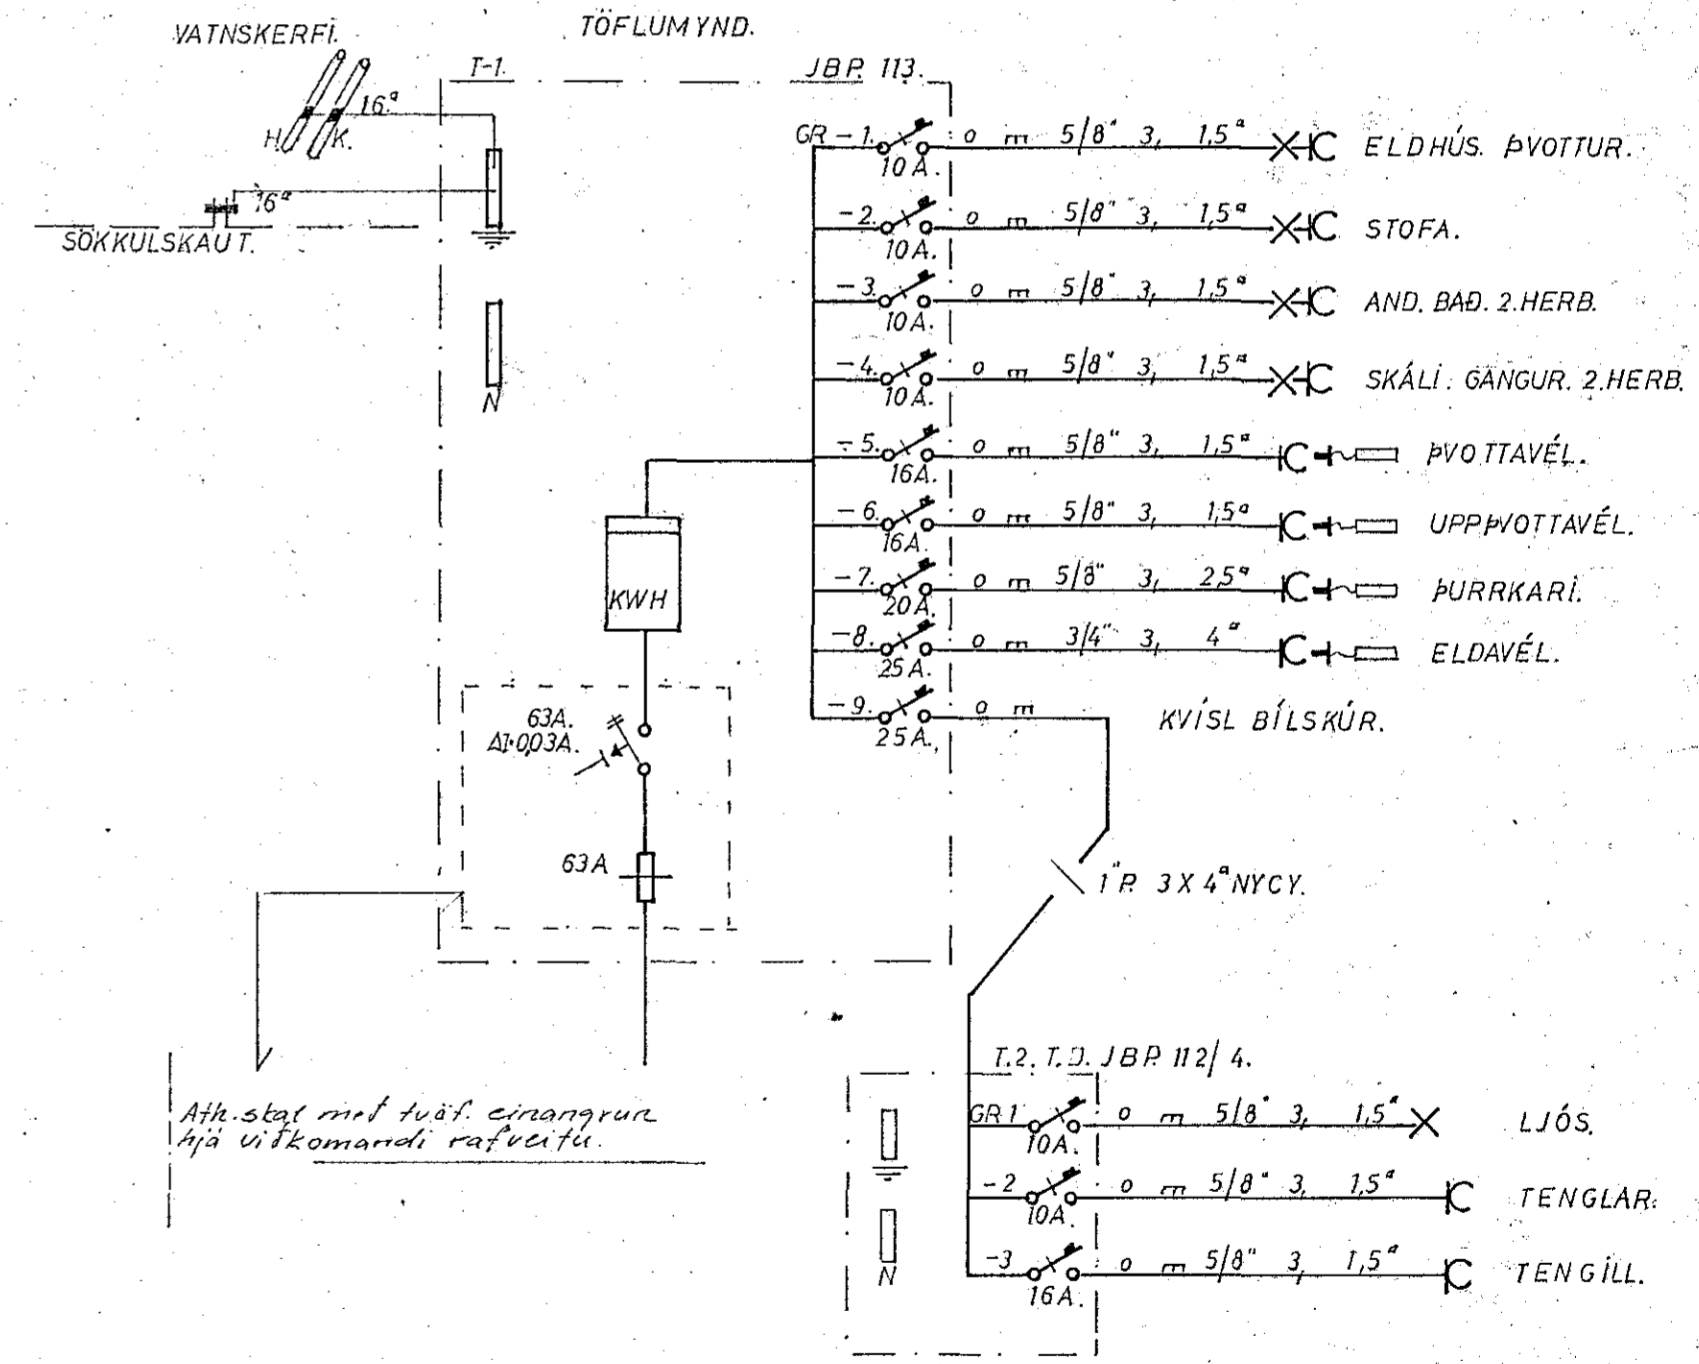 VATNSKERFI.
TÖFLUMYND.
T-1.
JBP. 113.
16.q
H.
K.
16q
SÖKKULSKAUT.
N
GR -1. 10A. 0 m 5/8" 3, 1,5q ELDHÚS. ÞVOTTUR.
-2. 10A. 0 m 5/8" 3, 1,5q STOFA.
-3. 10A. 0 m 5/8" 3, 1,5q AND. BAÐ. 2.HERB.
-4. 10A. 0 m 5/8" 3, 1,5q SKÁLI. GANGUR. 2.HERB.
-5. 16A. 0 m 5/8" 3, 1,5q ÞVOTTAVÉL.
-6. 16A. 0 m 5/8" 3, 1,5q UPPÞVOTTAVÉL.
-7. 20A. 0 m 5/8" 3, 2,5q ÞURRKARI.
-8. 25A. 0 m 3/4" 3, 4q ELDAVÉL.
-9. 25A. 0 m KVÍSL BÍLSKÚR.
KWH
63A.
ΔI·0,03A.
63A
1" P. 3X4q NYCY.
Ath. skal með tvöf. einangrun
hjá viðkomandi rafveitu.
T.2. T.D. JBP. 112/4.
GR 1 10A. 0 m 5/8" 3, 1,5q LJÓS.
-2 10A. 0 m 5/8" 3, 1,5q TENGLAR.
-3 16A. 0 m 5/8" 3, 1,5q TENGILL.
N